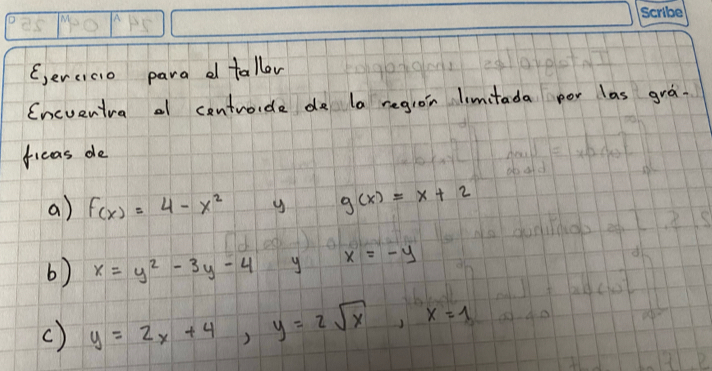 Scribe
Ejercicio para el taller
Encuentra el centroide de la región limitada por las grá-
ficas de
a) f(x) = 4 - x² y g(x) = x + 2
b) x = y² - 3y - 4 y x = -y
c) y = 2x + 4 , y = 2√x , x = 1